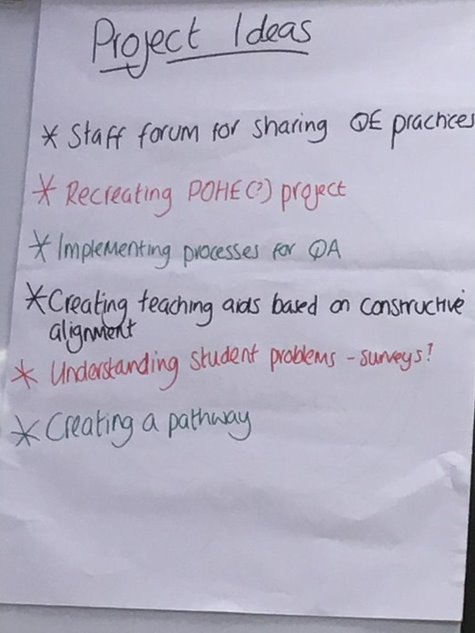 Project Ideas
* Staff forum for sharing QE practices
* Recreating POHE(?) project
* Implementing processes for QA
* Creating teaching aids based on constructive
alignment
* Understanding student problems - surveys?
* Creating a pathway